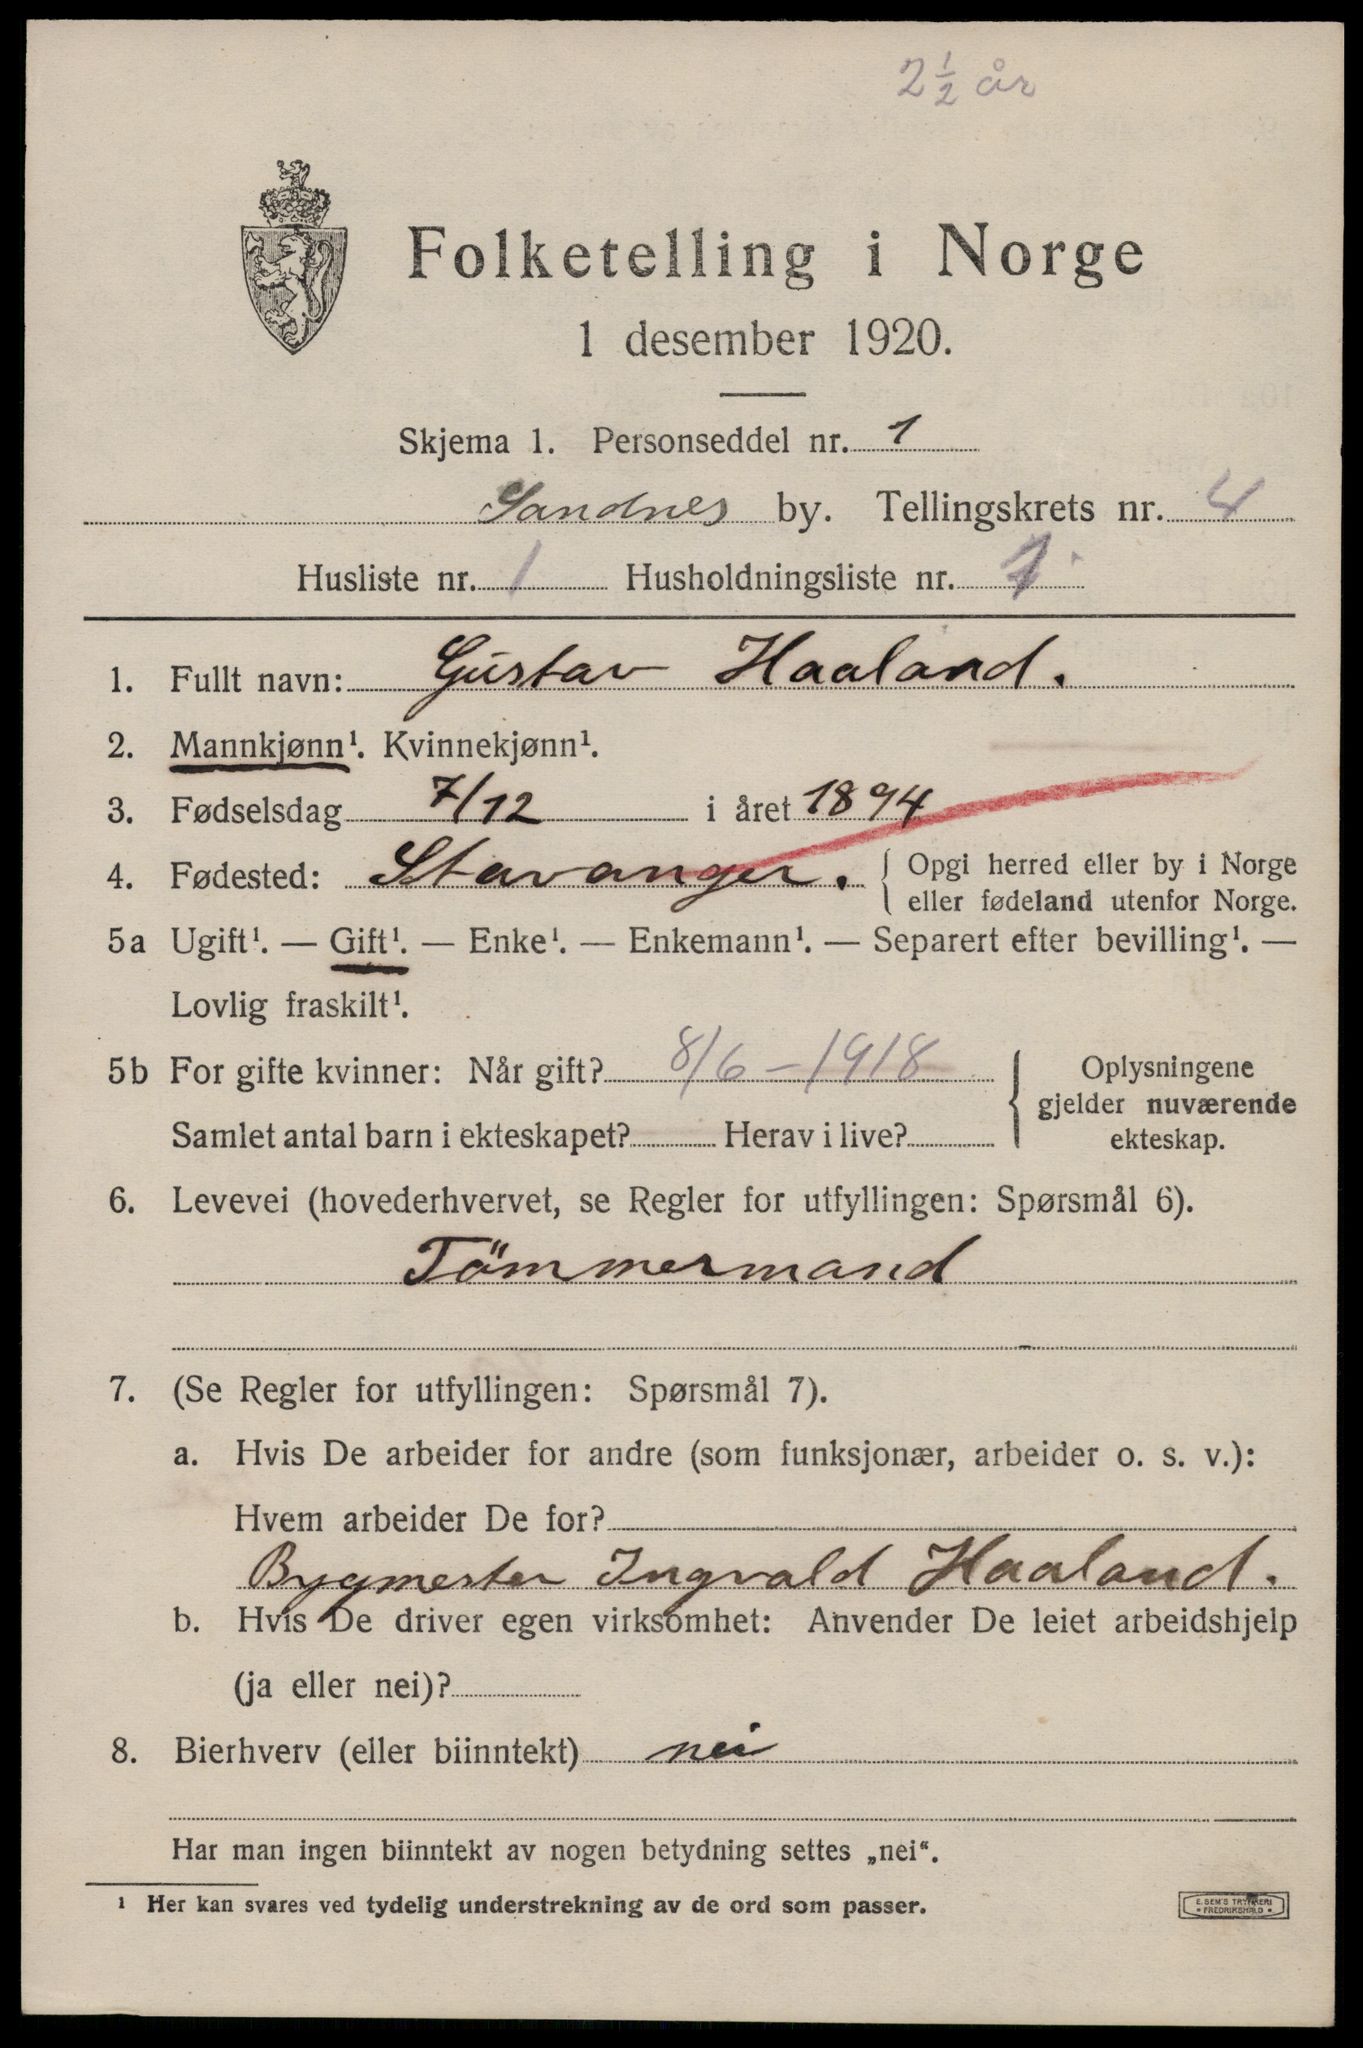 2 1/2 år
Folketelling i Norge
1 desember 1920.
Skjema 1. Personseddel nr. 1
Sandnes by. Tellingskrets nr. 4
Husliste nr. 1 Husholdningsliste nr. 1
1. Fullt navn: Gustav Haaland.
2. Mannkjønn¹. Kvinnekjønn¹.
3. Fødselsdag 7/12 i året 1894
4. Fødested: Stavanger. { Opgi herred eller by i Norge
eller fødeland utenfor Norge.
5a Ugift¹. — Gift¹. — Enke¹. — Enkemann¹. — Separert efter bevilling¹. —
Lovlig fraskilt¹.
5b For gifte kvinner: Når gift? 8/6 - 1918
Samlet antal barn i ekteskapet? Herav i live?
Oplysningene
gjelder nuværende
ekteskap.
6. Levevei (hovederhvervet, se Regler for utfyllingen: Spørsmål 6).
Tömmermand
7. (Se Regler for utfyllingen: Spørsmål 7).
a. Hvis De arbeider for andre (som funksjonær, arbeider o. s. v.):
Hvem arbeider De for?
Bygmester Ingvald Haaland.
b. Hvis De driver egen virksomhet: Anvender De leiet arbeidshjelp
(ja eller nei)?
8. Bierhverv (eller biinntekt) nei
Har man ingen biinntekt av nogen betydning settes „nei“.
¹ Her kan svares ved tydelig understrekning av de ord som passer.
E. SEM'S TRYKKERI
* FREDRIKSHALD *